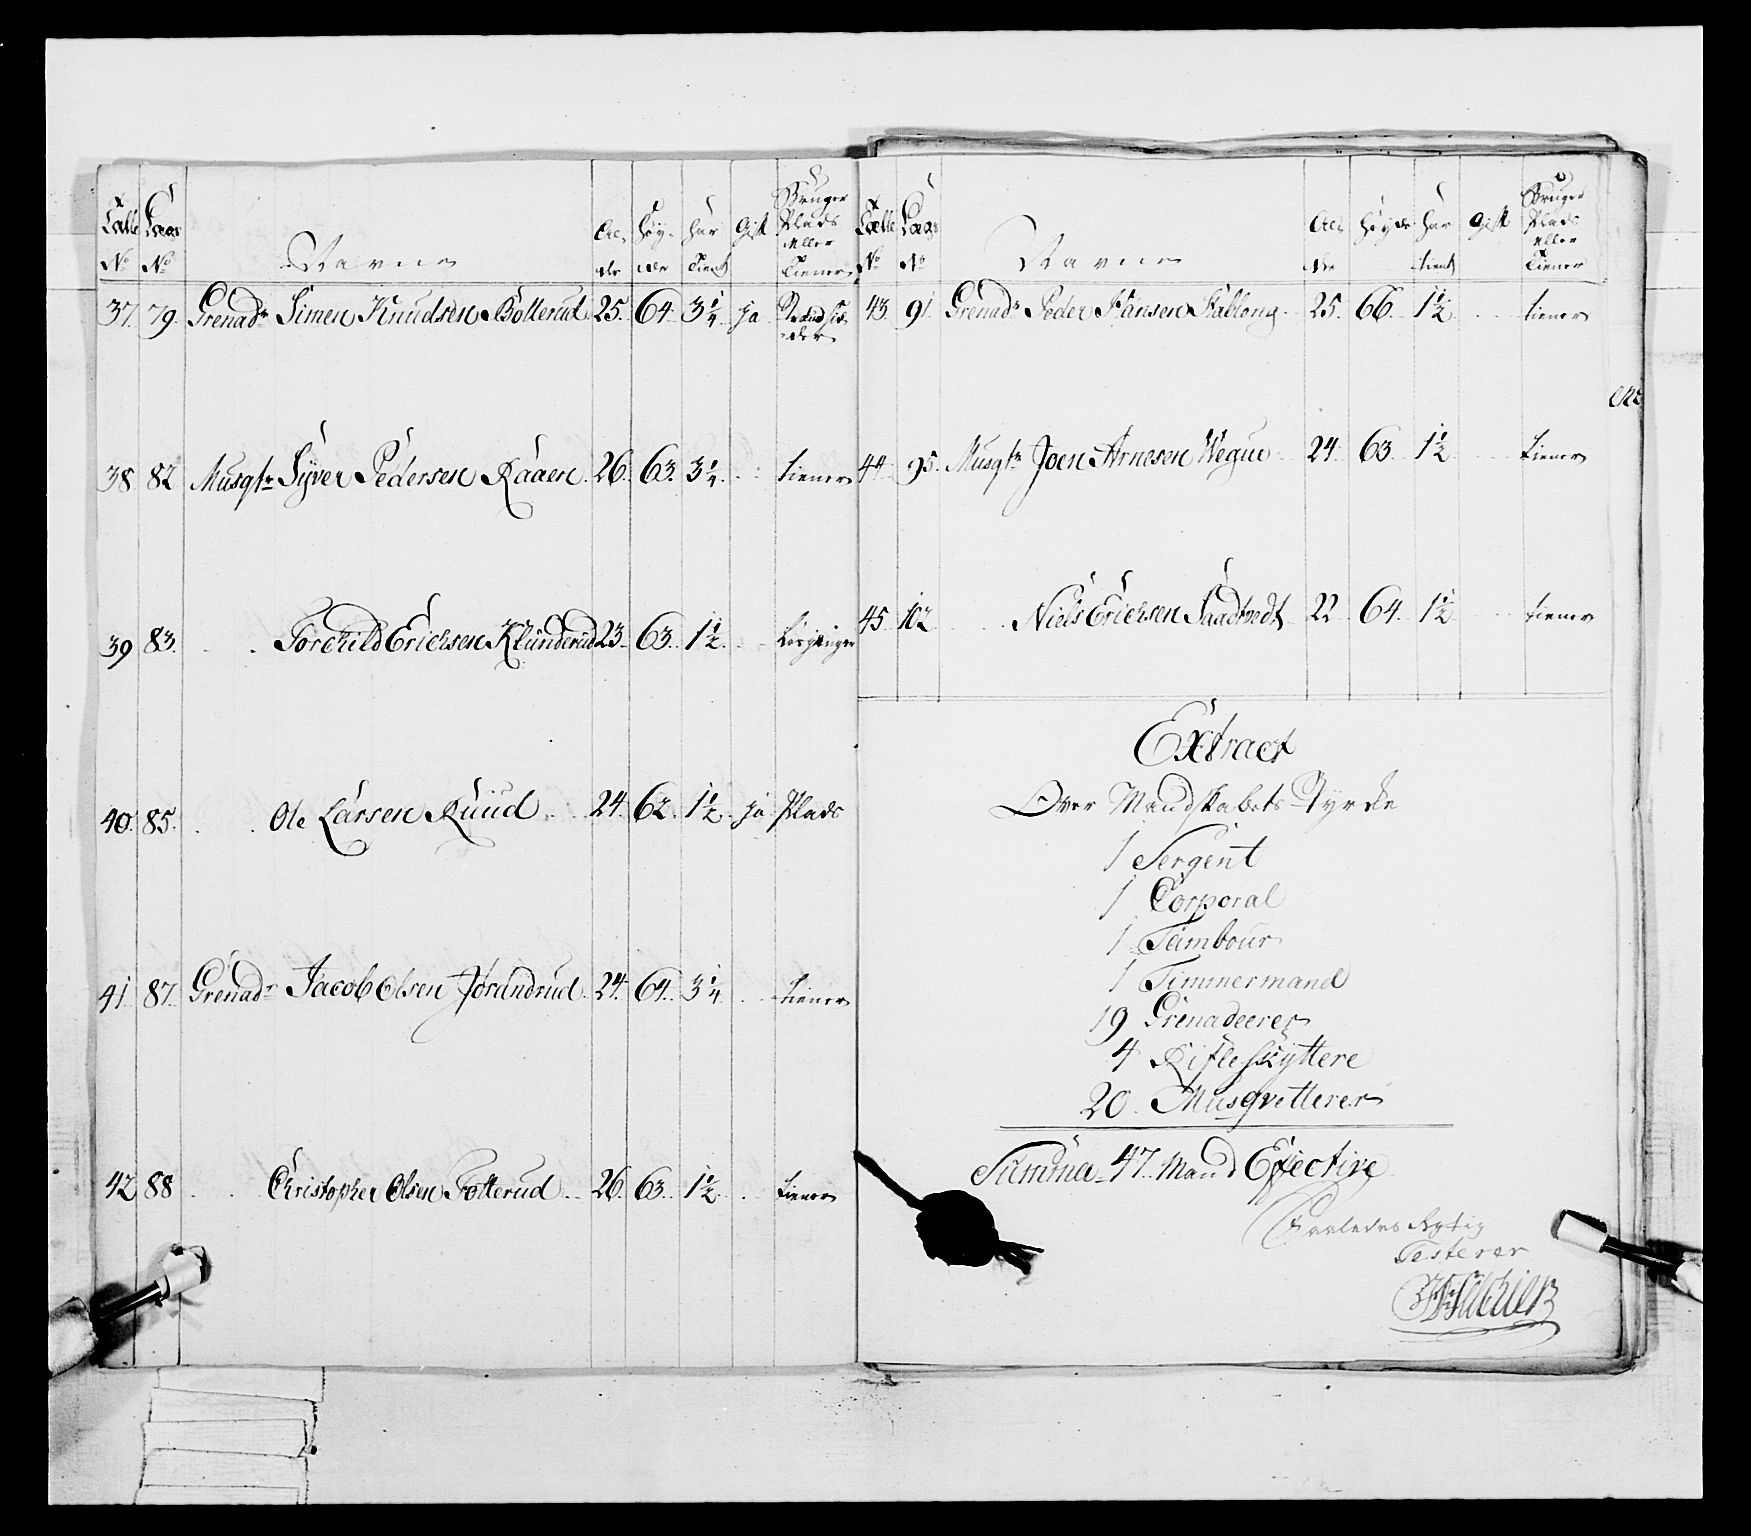 Tælle No Lægs No Navne Alder Høyde Har tient Gift Bruger Plads eller Tiener
37. 79. Grenadr Simen Knudsen Botterud 25. 64. 3 1/4 ja
38 82 Musqtr Syver Pedersen Raaen. 26. 63. 3 1/4 . . tiener
39 83. . . Torchild Erichsen Klunderud 23. 63. 1 1/2 . .
40. 85. . . Ole Larsen Ruud 24. 62. 1 1/2 ja Plads
41 87. Grenadr Jacob Olsen Jørandrud 24. 64. 3 1/4 . . tiener
42 88 . . Christopher Olsen Totterud 26. 63. 1 1/2 . tiener
Tælle No Lægs No Navne Alder Høyde Har tient Gift Bruger Plads eller Tiener
43. 91. Grenadr Peder Hansen 25. 66. 1 1/2 . . tiener
44 95. Musqtr Joen Arnesen Wegue 24 63 1 1/2 . . tiener
45 102 . . Niels Erichsen Saadtvedt 22 64. 1 1/2 . . tiener
Extract
Over Mandskabets Styrke
1 Sergent
1 Corporal
1 Tambour
1 Timmermand
19 Grenadeerer
4 Rifleskyttere
20. Musqvetterer
Summa 47. Mand Efective
Saaledes Rigtig
Testerer